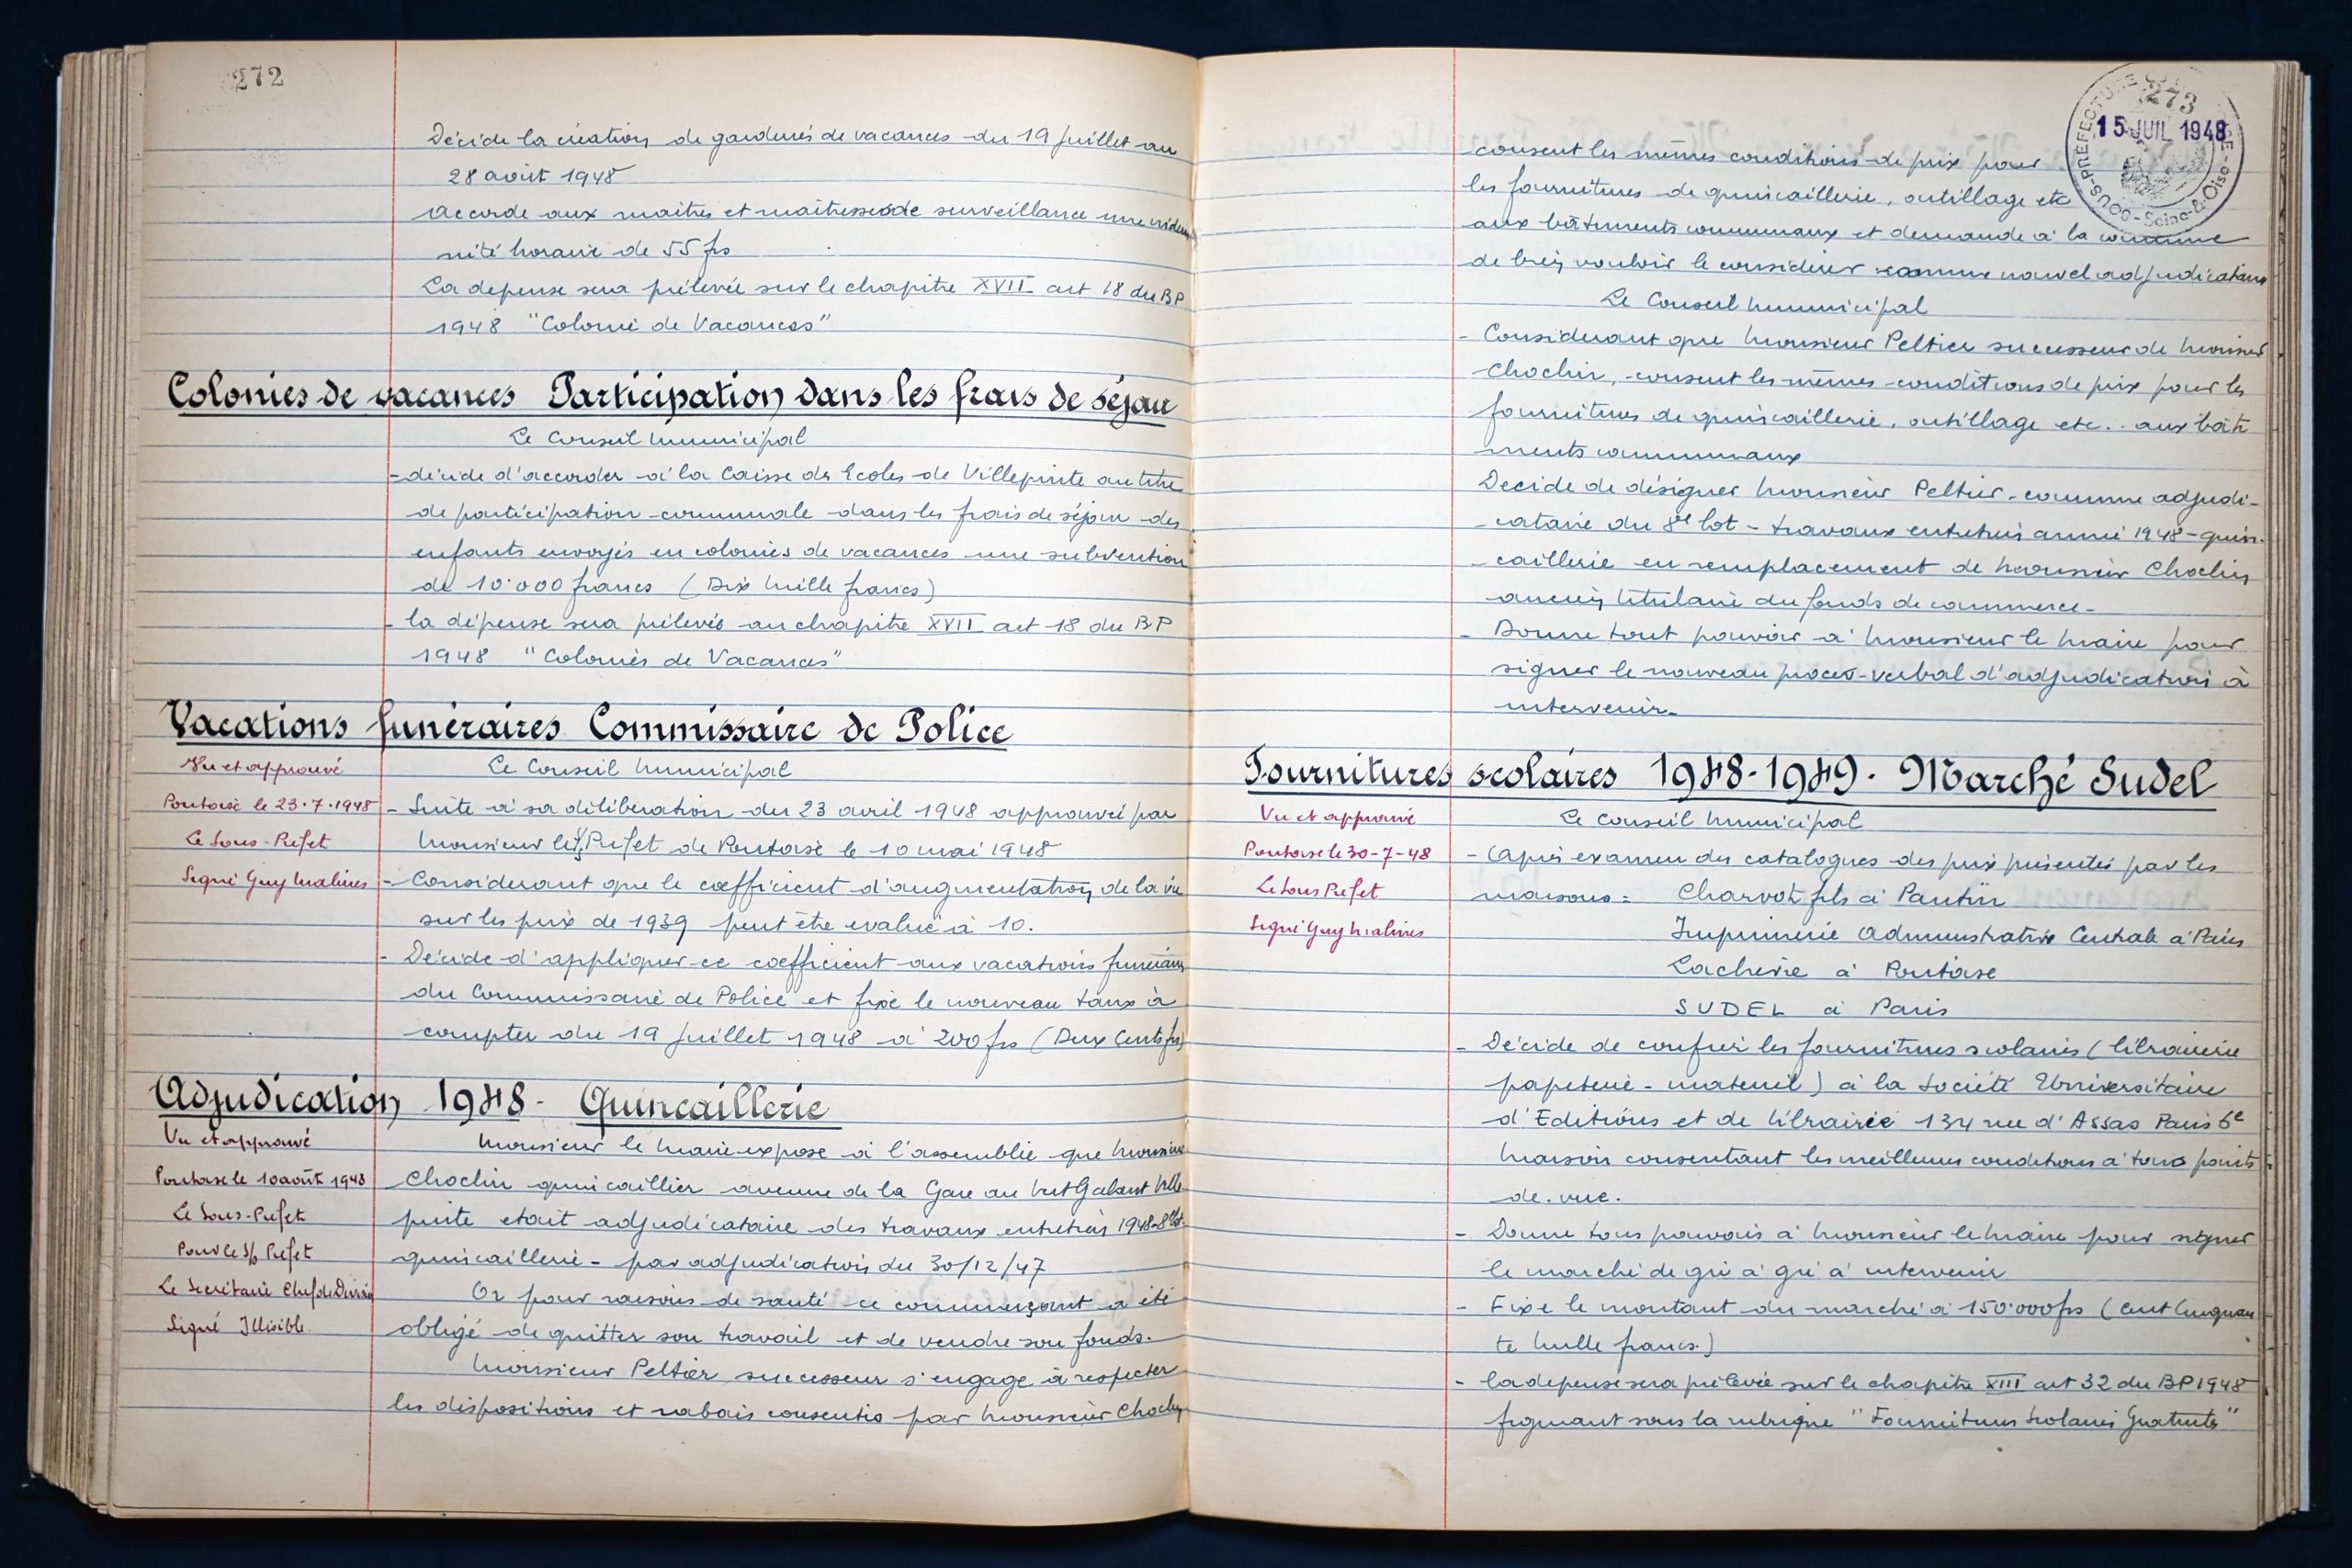 272
Décide la création de garderies de vacances du 19 juillet au
28 août 1948
Accorde aux maîtres et maîtresses de surveillance une indem
nité horaire de 55 frs
La dépense sera prélevée sur le chapitre XVII art 18 du BP
1948 "Colonie de Vacances"
Colonies de vacances Participation dans les frais de séjour
Le Conseil Municipal
- décide d'accorder à la Caisse des Ecoles de Villepinte au titre
de participation communale dans les frais de séjour des
enfants envoyés en colonies de vacances une subvention
de 10.000 francs (Dix Mille francs)
- la dépense sera prélevée au chapitre XVII art 18 du BP
1948 "Colonies de Vacances"
Vacations funéraires Commissaire de Police
Vu et approuvé
Le Conseil Municipal
Pontoise le 23.7.1948
- Suite à sa délibération du 23 avril 1948 approuvée par
Le Sous-Préfet
Monsieur le S/Préfet de Pontoise le 10 mai 1948
Signé Guy Malines
- Considérant que le coefficient d'augmentation de la vie
sur les prix de 1939 peut être évalué à 10.
- Décide d'appliquer ce coefficient aux vacations funéraires
du Commissaire de Police et fixe le nouveau taux à
compter du 19 Juillet 1948 à 200 frs (Deux Cents frs)
Adjudication 1948 - Quincaillerie
Vu et approuvé
Monsieur le Maire expose à l'assemblée que Monsieur
Pontoise le 10 août 1948
Chochin quincaillier avenue de la Gare au Vert Galant Ville
Le Sous-Préfet
pinte était adjudicataire des travaux entretien 1948-8e lot-
Pour le S/Préfet
quincaillerie - par adjudication du 30/12/47
Le Secrétaire Chef de Division
Or pour raisons de santé ce commerçant a été
Signé Illisible.
obligé de quitter son travail et de vendre son fonds.
Monsieur Peltier successeur s'engage à respecter
les dispositions et rabais consentis par Monsieur Chochin
SOUS-PRÉFECTURE
273
15 JUIL 1948
Seine-&-Oise
consent les mêmes conditions de prix pour
les fournitures de quincaillerie, outillage etc
aux bâtiments communaux et demande à la commune
de bien vouloir le considérer comme nouvel adjudicataire
Le Conseil Municipal
- Considérant que Monsieur Peltier successeur de Monsieur
Chochin, consent les mêmes conditions de prix pour les
fournitures de quincaillerie, outillage etc.. aux bâti
ments communaux
Decide de désigner Monsieur Peltier - comme adjudi-
-cataire du 8e lot - travaux entretien année 1948 - quin-
-caillerie en remplacement de Monsieur Chochin
ancien titulaire du fonds de commerce -
- Donne tout pouvoir à Monsieur le Maire pour
signer le nouveau procès-verbal d'adjudication à
intervenir -
Fournitures scolaires 1948-1949. Marché Sudel
Vu et approuvé
Le Conseil Municipal
Pontoise le 30-7-48
- Après examen des catalogues des prix présentés par les
Le Sous Préfet
maisons = Charvot fils à Pantin
Signé Guy Malines
Imprimerie Administrative Centrale à Paris
Lacherie à Pontoise
SUDEL à Paris
- Décide de confier les fournitures scolaires (librairie
papeterie - matériel) à la Société Universitaire
d'Editions et de librairie 134 rue d'Assas Paris 6e
Maison consentant les meilleures conditions à tous points
de vue.
- Donne tous pouvoirs à Monsieur le Maire pour signer
le marché de gré à gré à intervenir
- Fixe le montant du marché à 150.000 frs (Cent Cinquan
te Mille francs.)
- la dépense sera prélevée sur le chapitre XIII art 32 du BP 1948
figurant sous la rubrique "Fournitures Scolaires Gratuites"